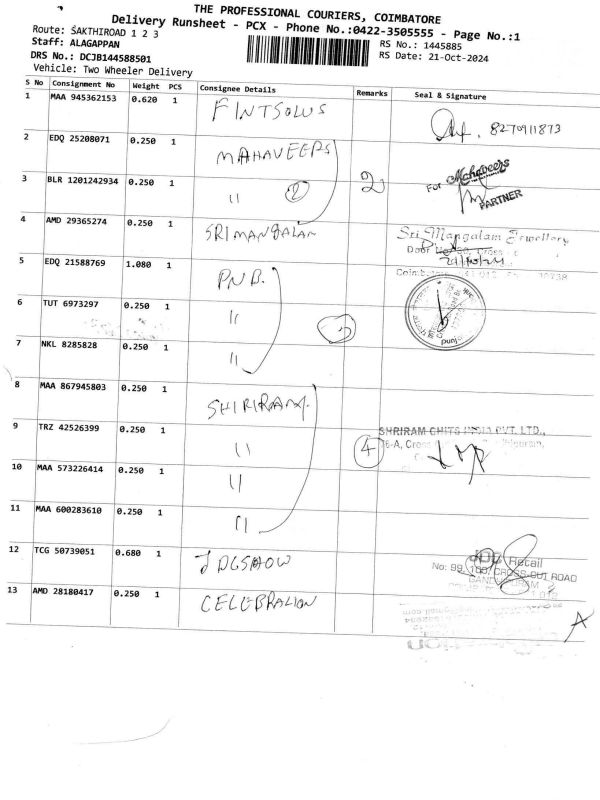 THE PROFESSIONAL COURIERS, COIMBATORE
Delivery Runsheet - PCX - Phone No.:0422-3505555 - Page No.:1
Route: SAKTHIROAD 1 2 3
RS No.: 1445885
Staff: ALAGAPPAN
RS Date: 21-Oct-2024
DRS No.: DCJB144588501
Vehicle: Two Wheeler Delivery
S No Consignment No Weight PCS Consignee Details Remarks Seal & Signature
1 MAA 945362153 0.620 1 FINTSOLUS 8270911873
2 EDQ 25208071 0.250 1 MAHAVEERS For Mahaveers
3 BLR 1201242934 0.250 1 " 2 2 PARTNER
4 AMD 29365274 0.250 1 SRIMANGALAM Sri Mangalam Jewellery
Door No
5 EDQ 21588769 1.080 1 PNB.
6 TUT 6973297 0.250 1 "
7 NKL 8285828 0.250 1 "
8 MAA 867945803 0.250 1 SHRIRAM
9 TRZ 42526399 0.250 1 " 4 SHRIRAM CHITS INDIA PVT. LTD.,
10 MAA 573226414 0.250 1 "
11 MAA 600283610 0.250 1 "
12 TCG 50739051 0.680 1 Retail
No: 99, 100, CROSS CUT ROAD
13 AMD 28180417 0.250 1 CELEBRATION